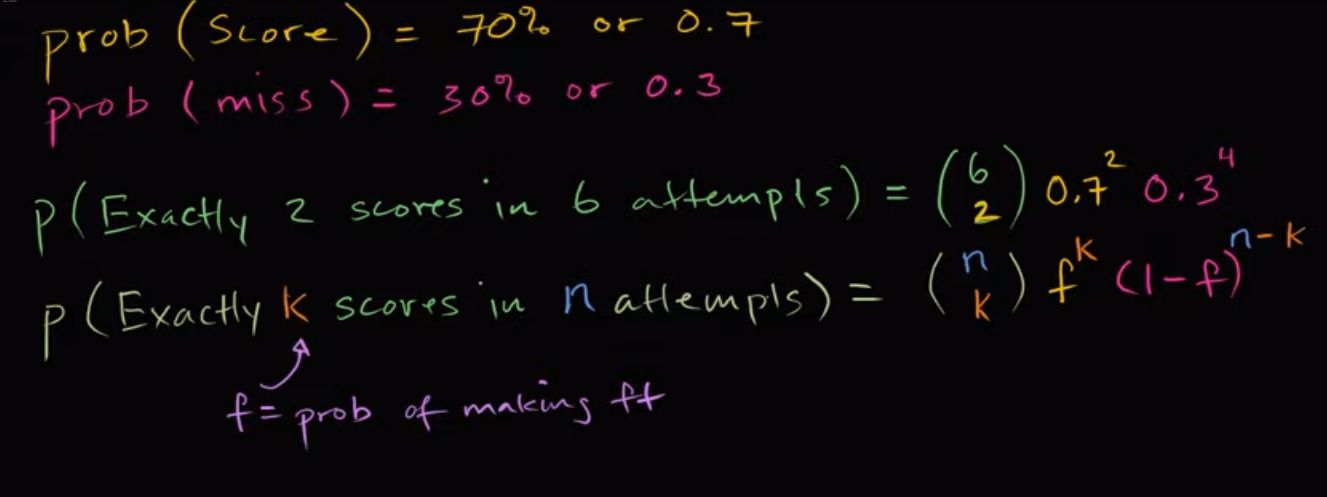 prob (Score) = 70% or 0.7
prob (miss) = 30% or 0.3
P(Exactly 2 scores in 6 attempts) = (6 2) 0.7² 0.3⁴
P(Exactly k scores in n attempts) = (n k) f^k (1-f)^n-k
f = prob of making ft